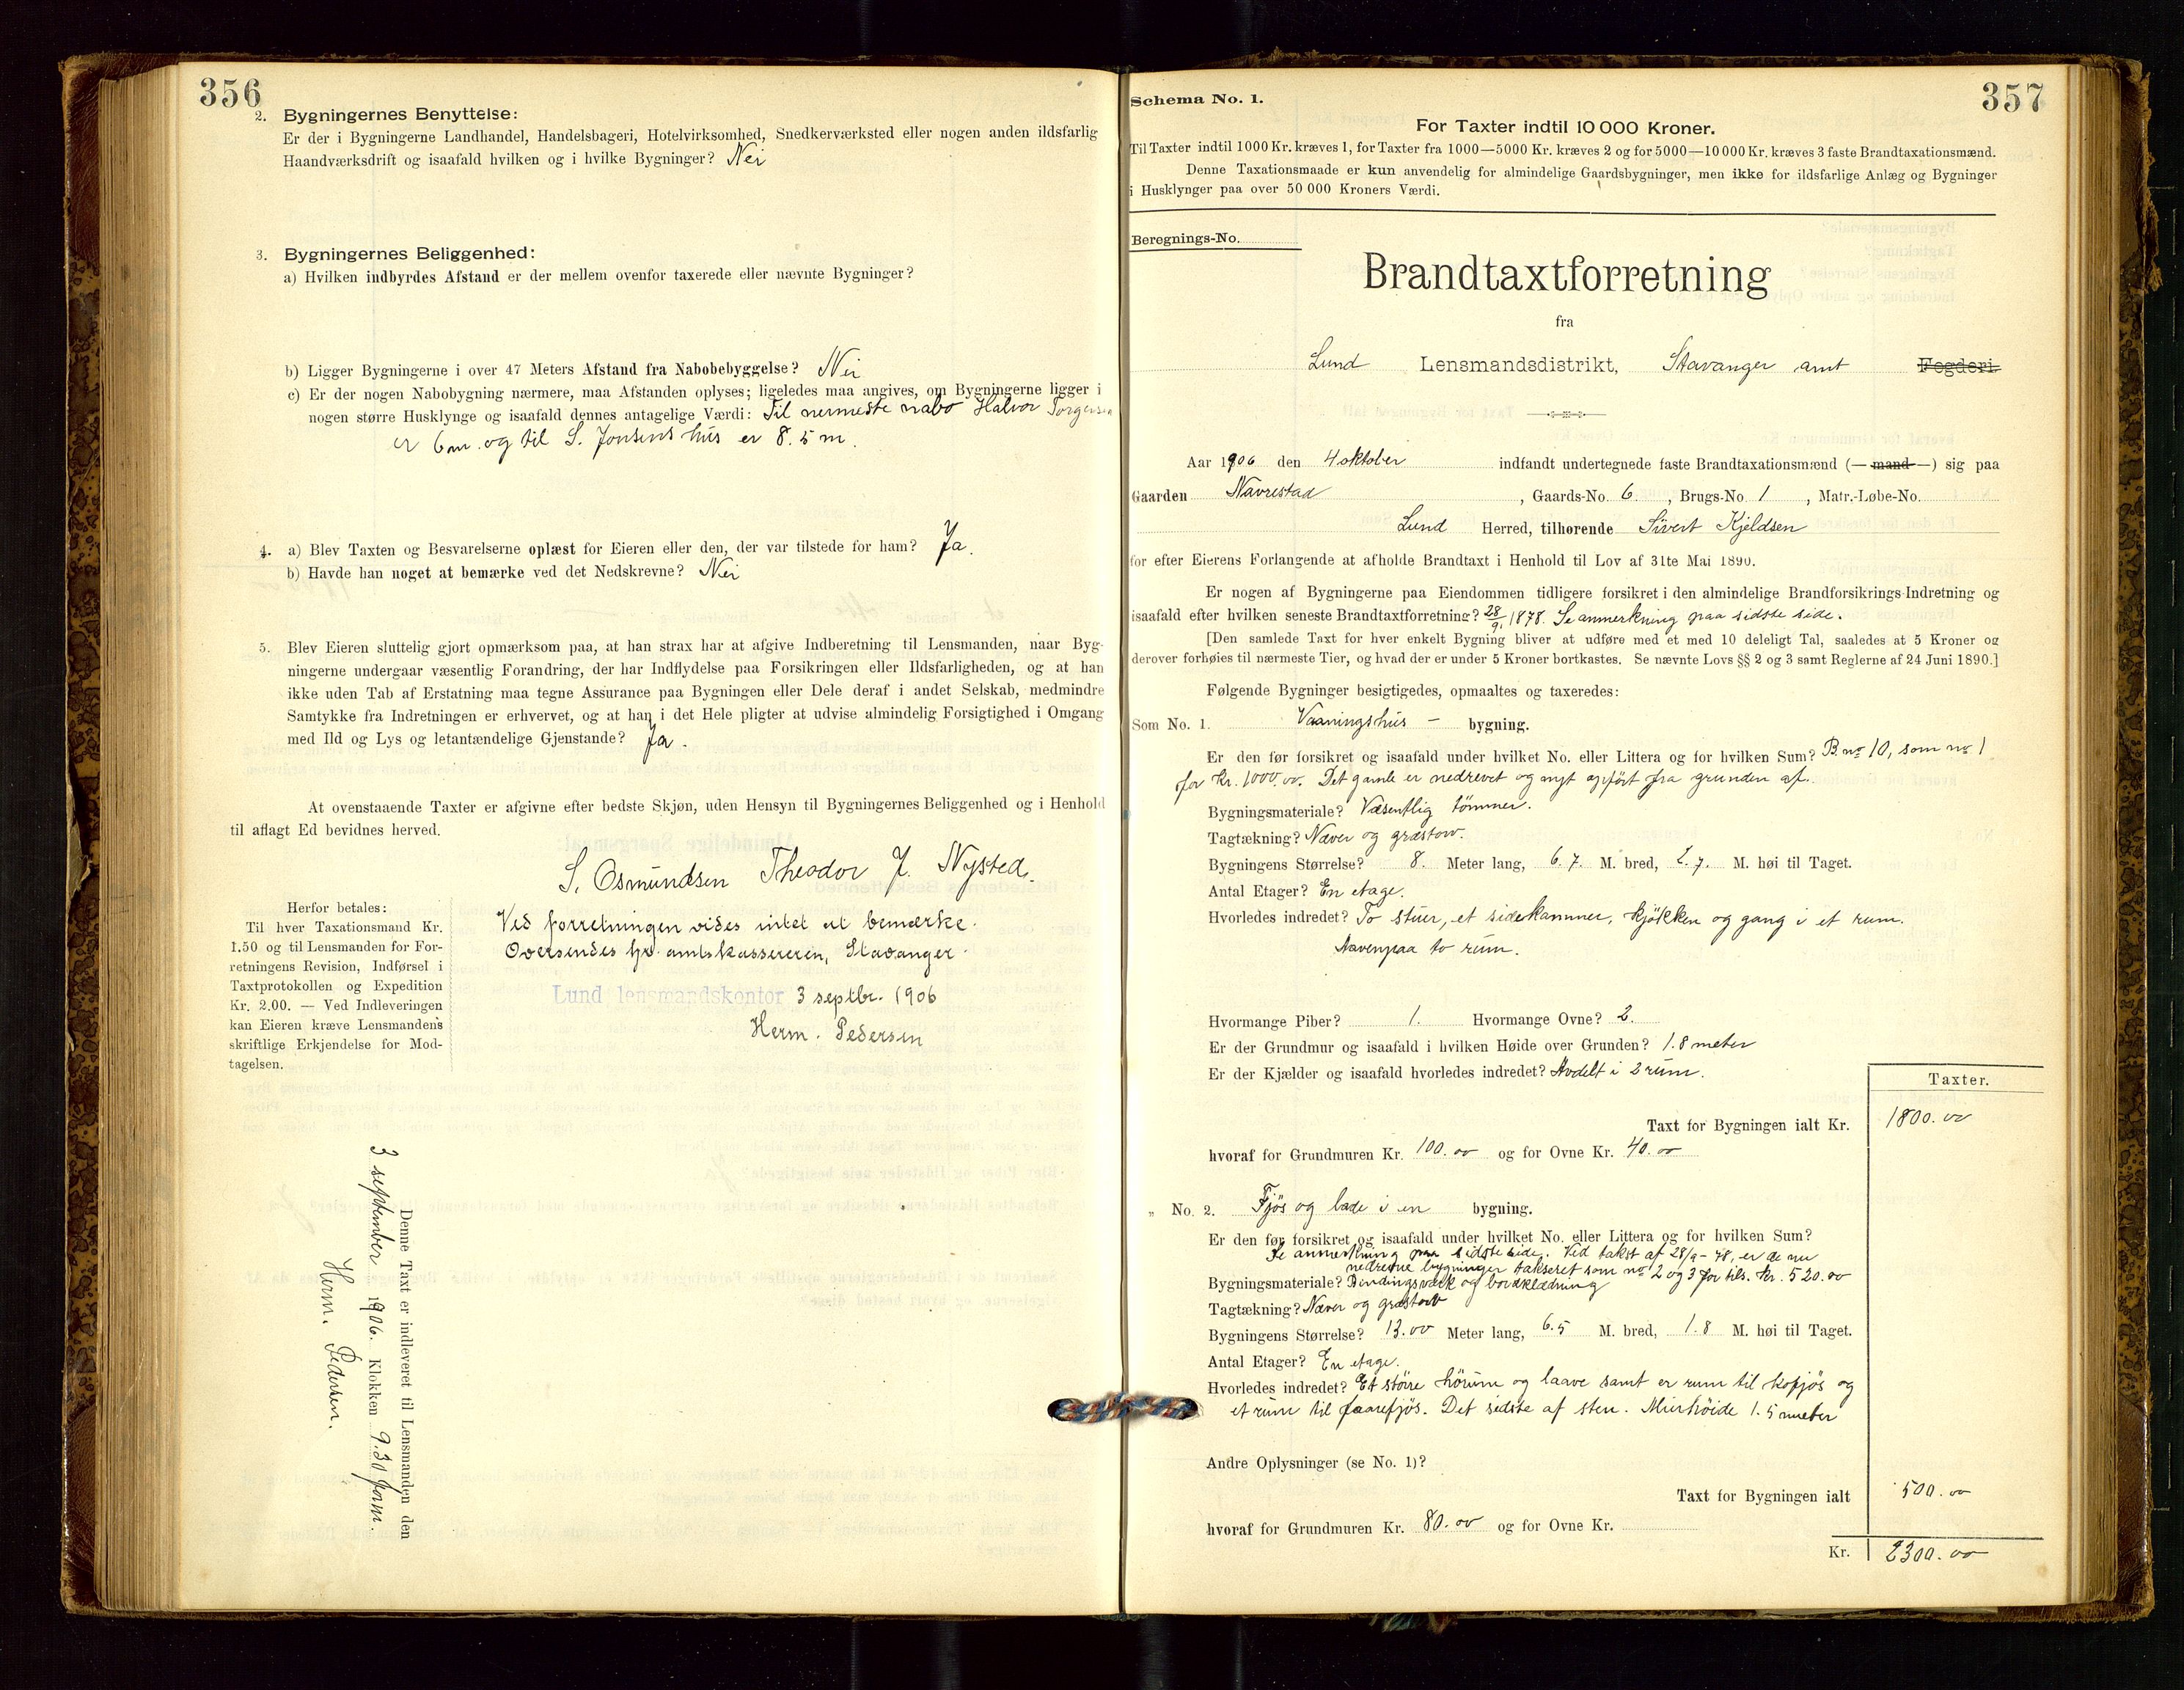 356
2. Bygningernes Benyttelse:
Er der i Bygningerne Landhandel, Handelsbageri, Hotelvirksomhed, Snedkerværksted eller nogen anden ildsfarlig
Haandværksdrift og isaafald hvilken og i hvilke Bygninger? Nei
3. Bygningernes Beliggenhed:
a) Hvilken indbyrdes Afstand er der mellem ovenfor taxerede eller nævnte Bygninger?
b) Ligger Bygningerne i over 47 Meters Afstand fra Nabobebyggelse? Nei
c) Er der nogen Nabobygning nærmere, maa Afstanden oplyses; ligeledes maa angives, om Bygningerne ligger i
nogen større Husklynge og isaafald dennes antagelige Værdi: Til nermeste nabo Halvor Torgersen
er 6 m. og til S. Jonsens hus er 8.5 m.
4. a) Blev Taxten og Besvarelserne oplæst for Eieren eller den, der var tilstede for ham? Ja.
b) Havde han noget at bemærke ved det Nedskrevne? Nei
5. Blev Eieren sluttelig gjort opmærksom paa, at han strax har at afgive Indberetning til Lensmanden, naar Byg-
ningerne undergaar væsentlig Forandring, der har Indflydelse paa Forsikringen eller Ildsfarligheden, og at han
ikke uden Tab af Erstatning maa tegne Assurance paa Bygningen eller Dele deraf i andet Selskab, medmindre
Samtykke fra Indretningen er erhvervet, og at han i det Hele pligter at udvise almindelig Forsigtighed i Omgang
med Ild og Lys og letantændelige Gjenstande? Ja.
At ovenstaaende Taxter er afgivne efter bedste Skjøn, uden Hensyn til Bygningernes Beliggenhed og i Henhold
til aflagt Ed bevidnes herved.
S. Osmundsen Theodor J. Nysted.
Herfor betales:
Til hver Taxationsmand Kr.
1.50 og til Lensmanden for For-
retningens Revision, Indførsel i
Taxtprotokollen og Expedition
Kr. 2.00. — Ved Indleveringen
kan Eieren kræve Lensmandens
skriftlige Erkjendelse for Mod-
tagelsen.
Ved forretningen vides intet at bemærke.
Oversendes hr. amtskassereren, Stavanger.
Lund lensmandskontor 3 septbr. 1906
Herm. Pedersen
Denne Taxt er indleveret til Lensmanden den
3 september 1906. Klokken 9.30 form.
Herm. Pedersen.
357
Schema No. 1.
For Taxter indtil 10 000 Kroner.
Til Taxter indtil 1000 Kr. kræves 1, for Taxter fra 1000—5000 Kr. kræves 2 og for 5000—10 000 Kr. kræves 3 faste Brandtaxationsmænd.
Denne Taxationsmaade er kun anvendelig for almindelige Gaardsbygninger, men ikke for ildsfarlige Anlæg og Bygninger
i Husklynger paa over 50 000 Kroners Værdi.
Beregnings-No.
Brandtaxtforretning
fra
Lund Lensmandsdistrikt, Stavanger amt Fogderi.
Aar 1906 den 4 oktober indfandt undertegnede faste Brandtaxationsmænd (—mand—) sig paa
Gaarden Navrestad, Gaards-No. 6, Brugs-No. 1, Matr.-Løbe-No.
Lund Herred, tilhørende Sivert Kjeldsen
for efter Eierens Forlangende at afholde Brandtaxt i Henhold til Lov af 31te Mai 1890.
Er nogen af Bygningerne paa Eiendommen tidligere forsikret i den almindelige Brandforsikrings-Indretning og
isaafald efter hvilken seneste Brandtaxtforretning? 28/9 1878. Se anmerkning paa sidste side.
[Den samlede Taxt for hver enkelt Bygning bliver at udføre med et med 10 deleligt Tal, saaledes at 5 Kroner og
derover forhøies til nærmeste Tier, og hvad der er under 5 Kroner bortkastes. Se nævnte Lovs §§ 2 og 3 samt Reglerne af 24 Juni 1890.]
Følgende Bygninger besigtigedes, opmaaltes og taxeredes:
Som No. 1. Vaaningshus - bygning.
Er den før forsikret og isaafald under hvilket No. eller Littera og for hvilken Sum? B. no 10, som no 1
for kr. 1000.00. Det gamle er nedrevet og nyt opført fra grunden af.
Bygningsmateriale? Væsentlig tömmer.
Tagtækning? Næver og græstorv.
Bygningens Størrelse? 8. Meter lang, 6.7 M. bred, 2.7. M. høi til Taget.
Antal Etager? En etage.
Hvorledes indredet? To stuer, et sidekammer, kjökken og gang i et rum.
Aavenpaa to rum.
Hvormange Piber? 1. Hvormange Ovne? 2.
Er der Grundmur og isaafald i hvilken Høide over Grunden? 1.8 meter
Er der Kjælder og isaafald hvorledes indredet? Avdelt i 2 rum.
Taxter.
Taxt for Bygningen ialt Kr. 1800.00
hvoraf for Grundmuren Kr. 100.00 og for Ovne Kr. 40.00
„ No. 2. Fjös og lade i en bygning.
Er den før forsikret og isaafald under hvilket No. eller Littera og for hvilken Sum?
Se anmerkning paa sidste side. Ved takst af 28/9-78, er de nu
nedrevne bygninger takseret som no 2 og 3 for tils. kr. 520.00
Bygningsmateriale? Bindingsværk og bordklædning
Tagtækning? Næver og græstorv
Bygningens Størrelse? 13.00 Meter lang, 6.5 M. bred, 1.8 M. høi til Taget.
Antal Etager? En etage.
Hvorledes indredet? Et större hörum og laave samt er rum til kofjös og
et rum til faarefjös. Det sidste af sten. Murhöide 1.5 meter
Andre Oplysninger (se No. 1)?
Taxt for Bygningen ialt 500.00
hvoraf for Grundmuren Kr. 80.00 og for Ovne Kr.
Kr. 2300.00